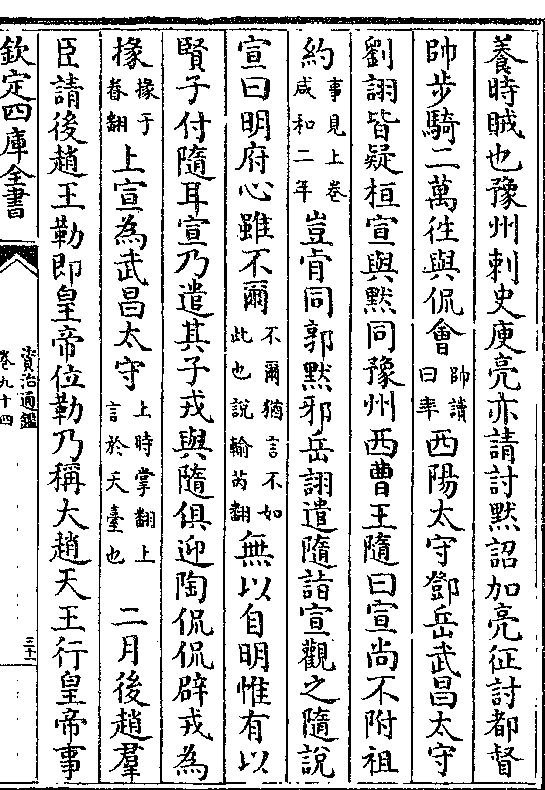 養時賊也豫州刺史庾亮亦請討黙詔加亮征討都督
帥步騎二萬徃與侃會帥讀曰率西陽太守鄧岳武昌太守
劉詡皆疑桓宣與黙同豫州西曹王隨曰宣尚不附祖
約事見上卷咸和二年豈肯同郭黙邪岳詡遣隨詣宣觀之隨說
宣曰明府心雖不爾不爾猶言不如此也說輸芮翻無以自明惟有以
賢子付隨耳宣乃遣其子戎與隨俱迎陶侃侃辟戎為
掾掾于眷翻上宣為武昌太守上時掌翻上言於天臺也二月後趙羣
臣請後趙王勒即皇帝位勒乃稱大趙天王行皇帝事
欽定四庫全書
資治通鑑
卷九十四
三十一